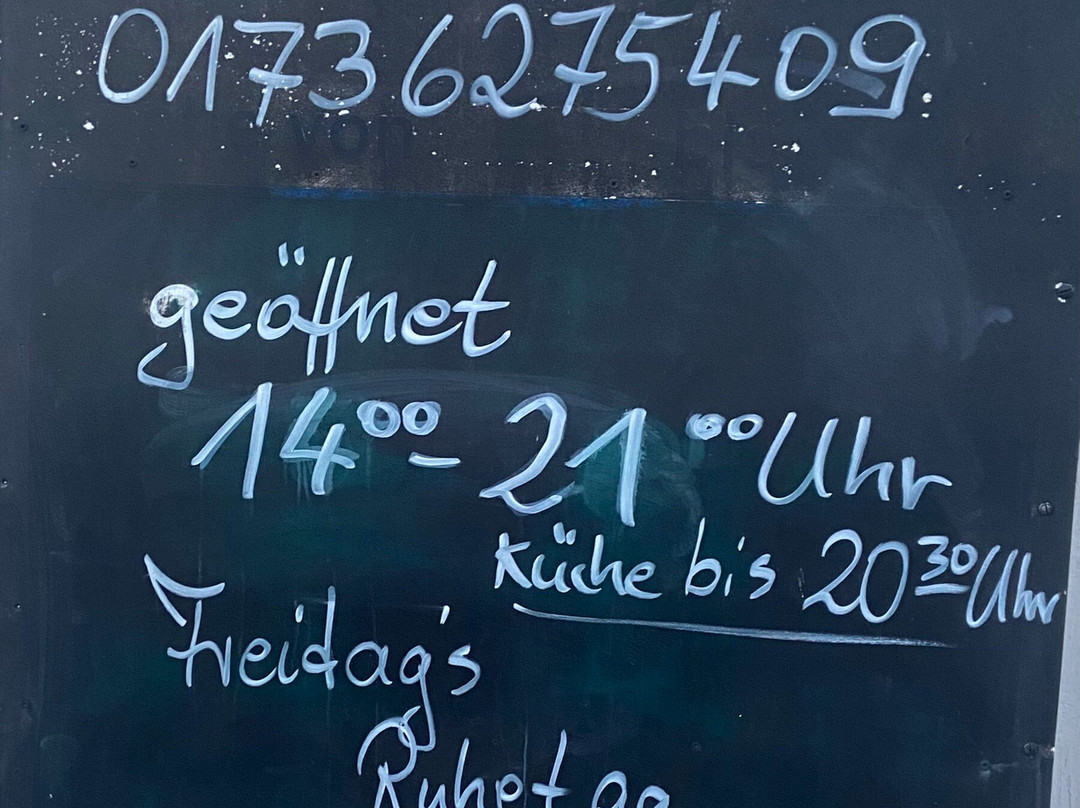 01736275409
geöffnet
14⁰⁰ - 21⁰⁰ Uhr
Küche bis 20³⁰ Uhr
Freitag's
Ruhetag